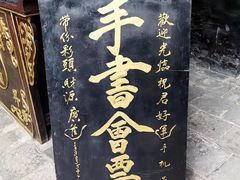 歡迎光臨祝君好運手札
手書會票
帶你彩頭財源廣